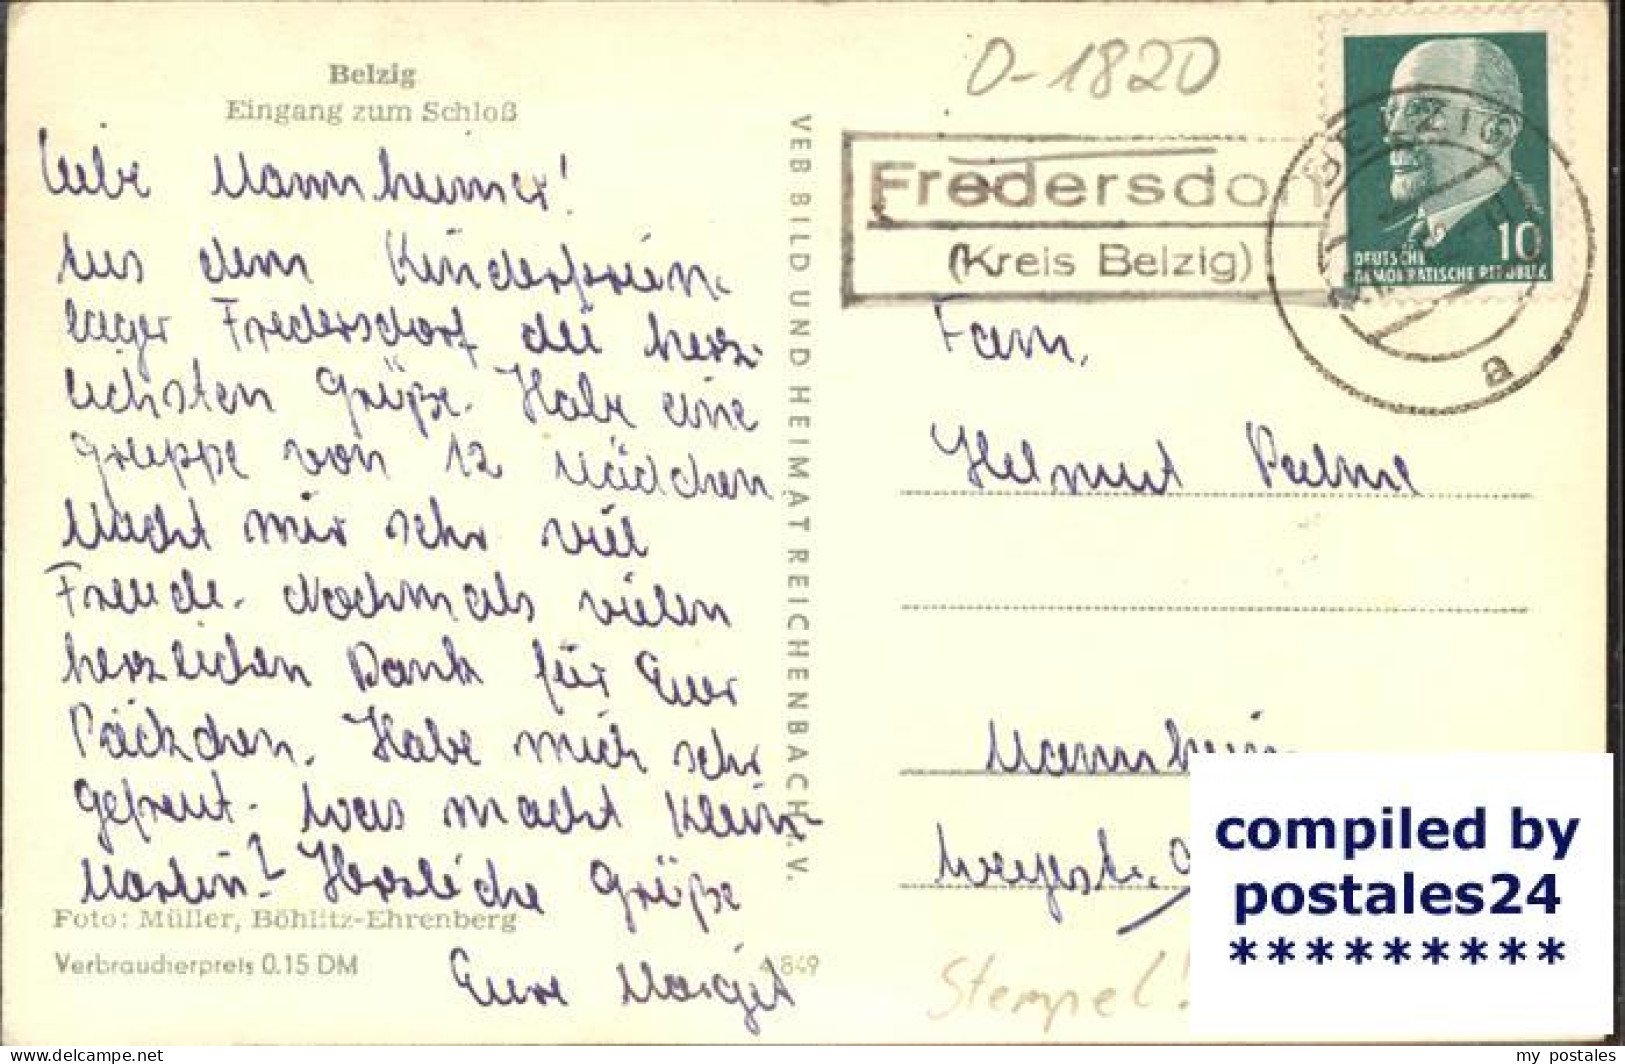 Belzig
Eingang zum Schloß
Liebe Mannheimer!
Aus dem Kinderferien-
lager Fredersdorf die herz-
lichsten Grüße. Habe eine
Gruppe von 12 Mädchen
Macht mir sehr viel
Freude. Nochmals vielen
herzlichen Dank für Euer
Päckchen. Habe mich sehr
gefreut. Was macht Klein-
Martin? Herzliche Grüße
Eure Margit
Foto: Müller, Böhlitz-Ehrenberg
Verbraucherpreis 0.15 DM
A 849
VEB BILD UND HEIMAT REICHENBACH I. V.
O-1820
Fredersdorf
(Kreis Belzig)
BELZIG
a
10
DEUTSCHE
DEMOKRATISCHE REPUBLIK
Fam.
Helmut
Mannheim
Stempel!
compiled by
postales24
*********
my_postales
https://www.delcampe.net